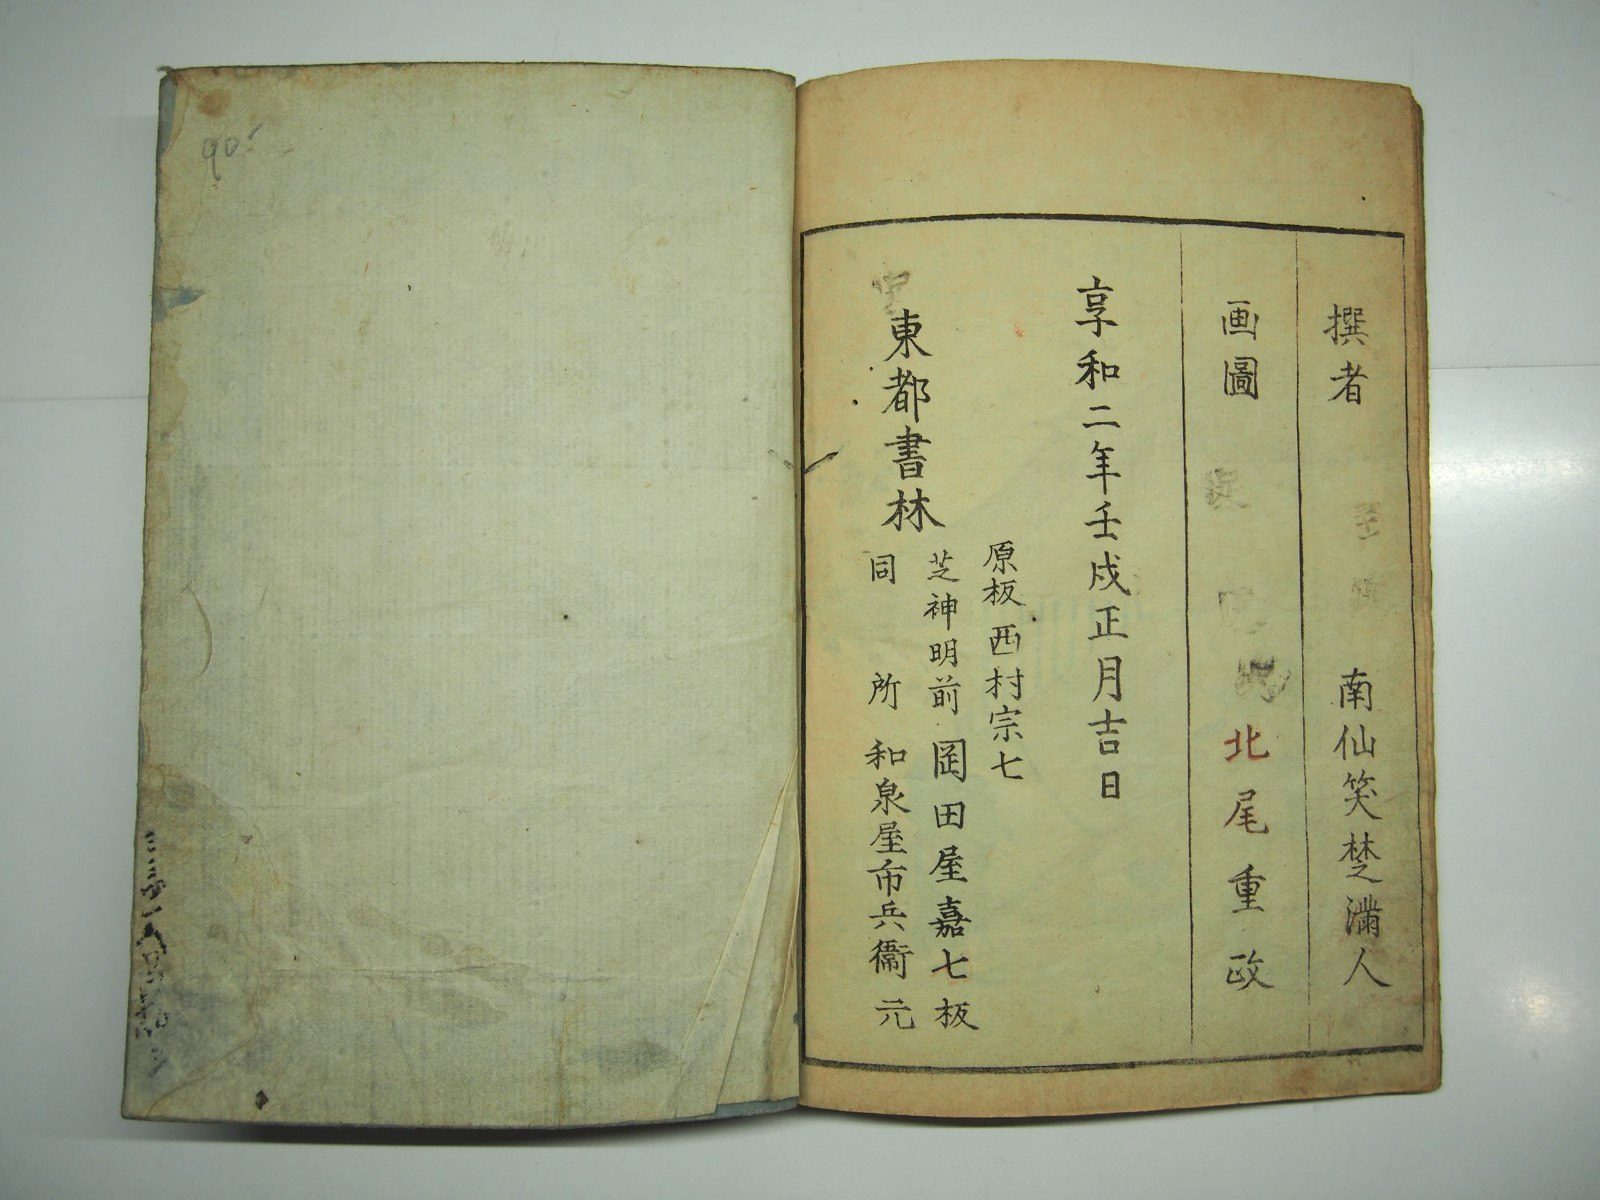 撰者 南仙笑楚滿人
画圖 北尾重政
享和二年壬戌正月吉日
原板 西村宗七
東都書林 芝神明前 岡田屋嘉七板
同所 和泉屋市兵衞元
90